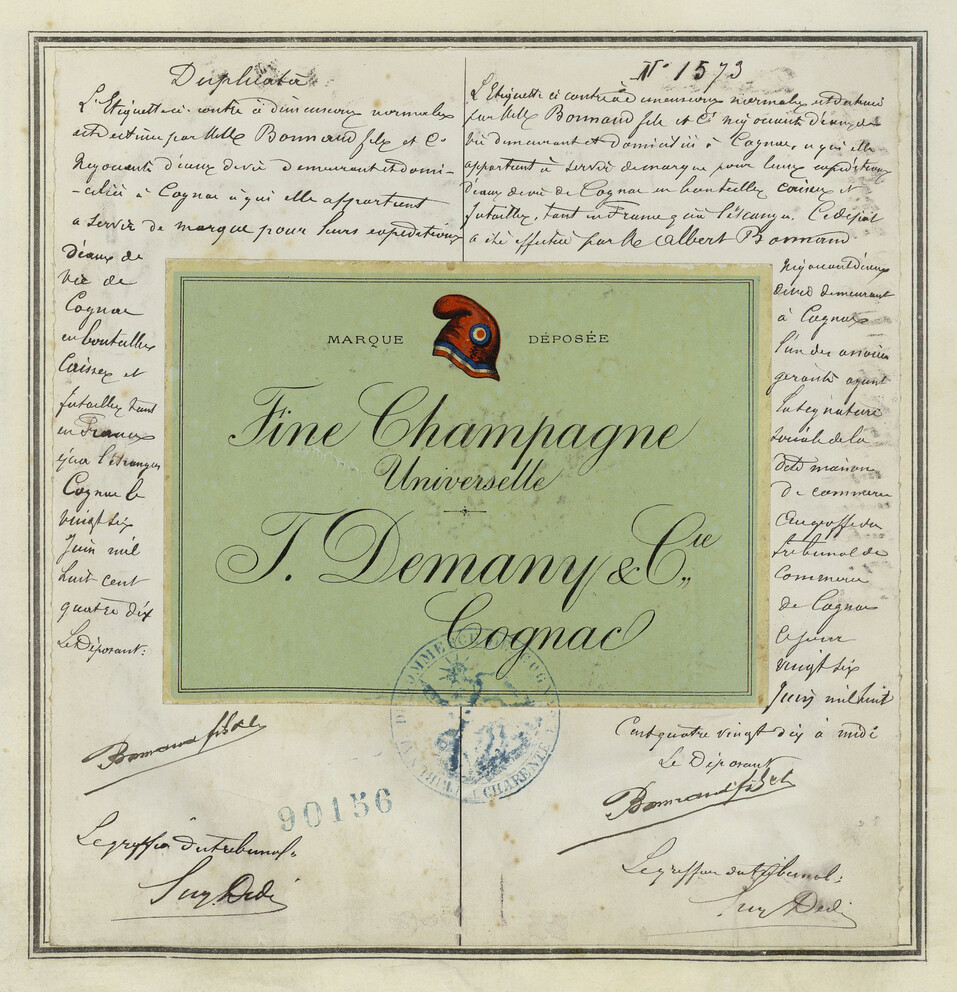 Duplicata
L'Etiquette ci-contre à dimensions normales
est destinée par MM Bonnaud fils et Cie
Négociants d'eaux de vie demeurant et domi-
-ciliés à Cognac à qui elle appartient
a servir de marque pour leurs expéditions
d'eaux de
vie de
Cognac
en bouteilles
Caisses et
futailles tant
en France
qu'a l'étranger
Cognac le
vingt six
Juin mil
huit cent
quatre dix
Le Déposant:
Bonnaud fils & Cie
Le greffier du tribunal
90156
N° 1573
L'Etiquette ci contre à dimensions normales est destinée
par MM Bonnaud fils et Cie négociants d'eaux de
vie demeurant et domiciliés à Cognac, à qui elle
appartient à servir de marque pour leurs expéditions
d'eaux de vie de Cognac en bouteilles caisses et
futailles, tant en France qu'a l'étranger. Ce dépôt
a été effectué par M. Albert Bonnaud
Négociant d'eaux
de vie demeurant
à Cognac
l'un des associés
gérants ayant
la signature
sociale de la
dite maison
de commerce
Au greffe du
tribunal de
Commerce
de Cognac
ce jour
vingt six
Juin mil huit
Cent quatre vingt dix à midi
Le Déposant
Bonnaud fils & Cie
Le greffier du tribunal:
MARQUE DÉPOSÉE
Fine Champagne
Universelle
T. Demany & Cie
Cognac
COMMERCE DE COGNAC
CHARENTE